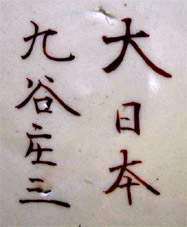 大日本
九谷庄三